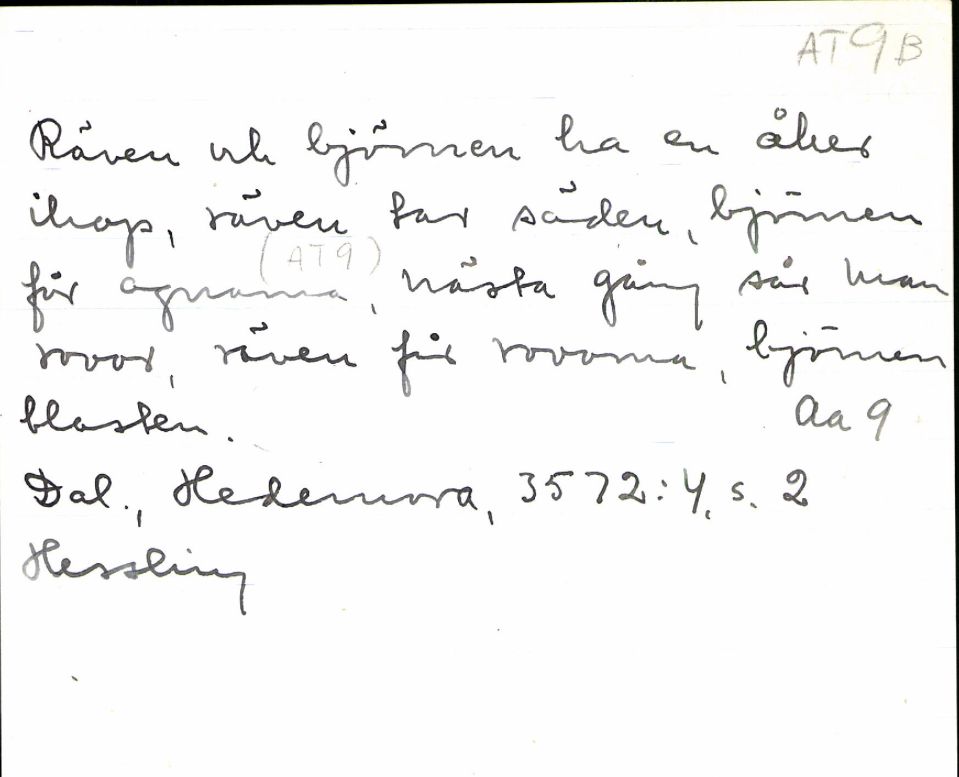 AT 9 B
Räven och björnen ha en åker
ihop, räven tar säden, björnen
(AT9)
får agnarna, nästa gång sår man
rovor, räven får rovorna, björnen
blasten.
Aa 9
Dal., Hedemora, 3572:4, s. 2
Hessling